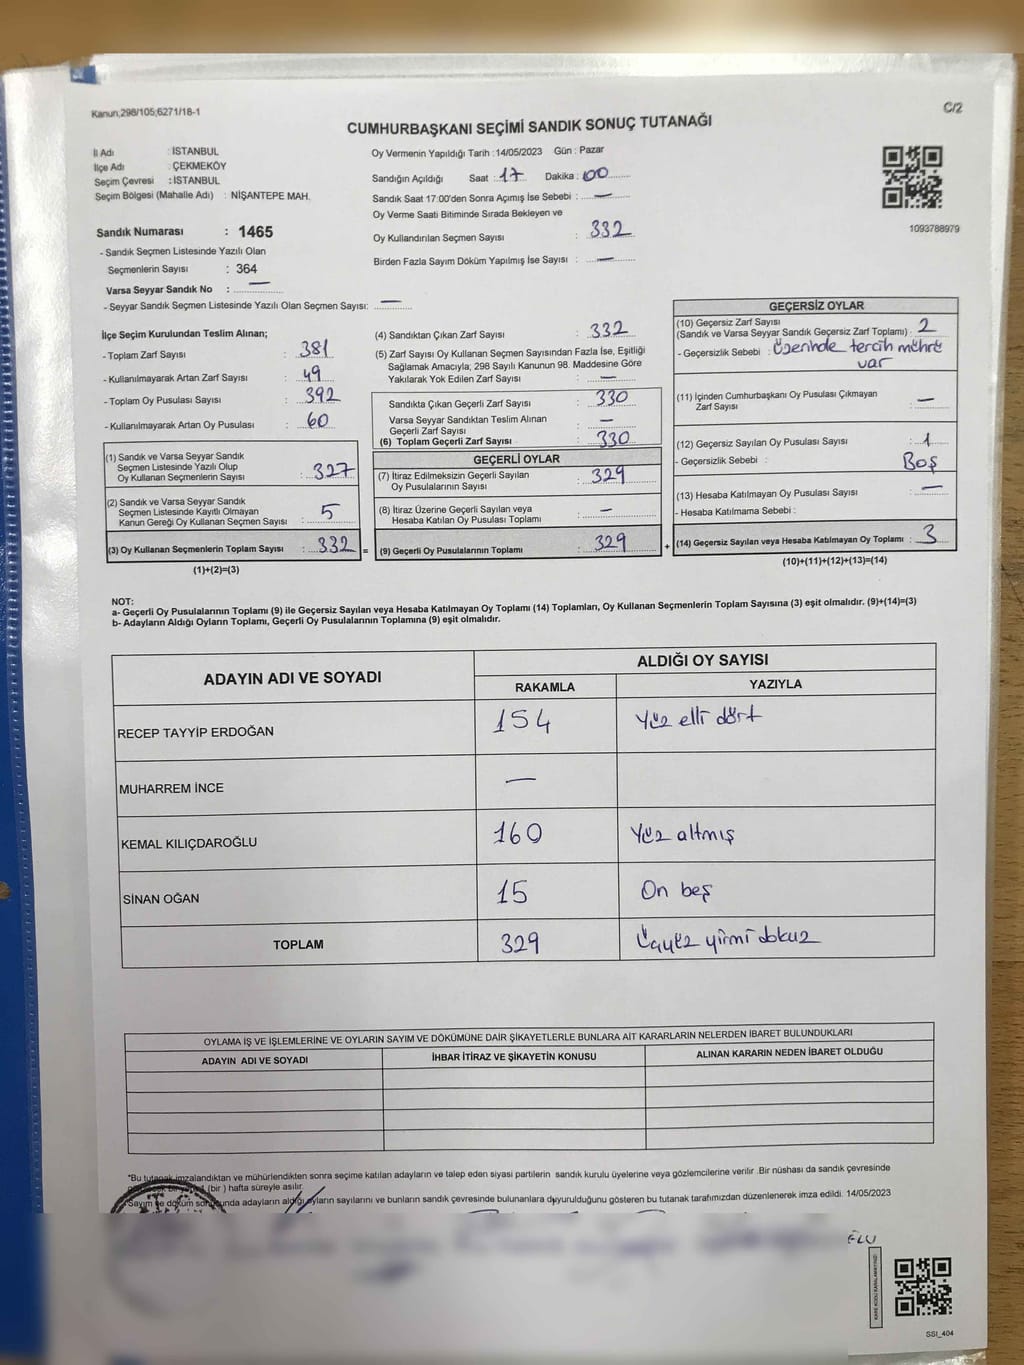 Kanun,298/105,6271/18-1
C/2
CUMHURBAŞKANI SEÇİMİ SANDIK SONUÇ TUTANAĞI
İl Adı : İSTANBUL
İlçe Adı : ÇEKMEKÖY
Seçim Çevresi : İSTANBUL
Seçim Bölgesi (Mahalle Adı) : NİŞANTEPE MAH.
Sandık Numarası : 1465
- Sandık Seçmen Listesinde Yazılı Olan
Seçmenlerin Sayısı : 364
Varsa Seyyar Sandık No : —
- Seyyar Sandık Seçmen Listesinde Yazılı Olan Seçmen Sayısı: —
Oy Vermenin Yapıldığı Tarih :14/05/2023 Gün : Pazar
Sandığın Açıldığı Saat : 17 Dakika : 00
Sandık Saat 17:00'den Sonra Açımış İse Sebebi : —
Oy Verme Saati Bitiminde Sırada Bekleyen ve
Oy Kullandırılan Seçmen Sayısı : 332
Birden Fazla Sayım Döküm Yapılmış İse Sayısı : —
1093788979
İlçe Seçim Kurulundan Teslim Alınan;
- Toplam Zarf Sayısı : 381
- Kullanılmayarak Artan Zarf Sayısı : 49
- Toplam Oy Pusulası Sayısı : 392
- Kullanılmayarak Artan Oy Pusulası : 60
(1) Sandık ve Varsa Seyyar Sandık
Seçmen Listesinde Yazılı Olup
Oy Kullanan Seçmenlerin Sayısı : 327
(2) Sandık ve Varsa Seyyar Sandık
Seçmen Listesinde Kayıtlı Olmayan
Kanun Gereği Oy Kullanan Seçmen Sayısı : 5
(3) Oy Kullanan Seçmenlerin Toplam Sayısı : 332 =
(1)+(2)=(3)
(4) Sandıktan Çıkan Zarf Sayısı : 332
(5) Zarf Sayısı Oy Kullanan Seçmen Sayısından Fazla İse, Eşitliği
Sağlamak Amacıyla; 298 Sayılı Kanunun 98. Maddesine Göre
Yakılarak Yok Edilen Zarf Sayısı : —
Sandıkta Çıkan Geçerli Zarf Sayısı : 330
Varsa Seyyar Sandıktan Teslim Alınan
Geçerli Zarf Sayısı : —
(6) Toplam Geçerli Zarf Sayısı : 330
GEÇERLİ OYLAR
(7) İtiraz Edilmeksizin Geçerli Sayılan
Oy Pusulalarının Sayısı : 329
(8) İtiraz Üzerine Geçerli Sayılan veya
Hesaba Katılan Oy Pusulası Toplamı : —
(9) Geçerli Oy Pusulalarının Toplamı : 329 +
GEÇERSİZ OYLAR
(10) Geçersiz Zarf Sayısı
(Sandık ve Varsa Seyyar Sandık Geçersiz Zarf Toplamı) : 2
- Geçersizlik Sebebi : Üzerinde tercih mührü
var
(11) İçinden Cumhurbaşkanı Oy Pusulası Çıkmayan
Zarf Sayısı : —
(12) Geçersiz Sayılan Oy Pusulası Sayısı : 1
- Geçersizlik Sebebi : Boş
(13) Hesaba Katılmayan Oy Pusulası Sayısı : —
- Hesaba Katılmama Sebebi :
(14) Geçersiz Sayılan veya Hesaba Katılmayan Oy Toplamı : 3
(10)+(11)+(12)+(13)=(14)
NOT:
a- Geçerli Oy Pusulalarının Toplamı (9) ile Geçersiz Sayılan veya Hesaba Katılmayan Oy Toplamı (14) Toplamları, Oy Kullanan Seçmenlerin Toplam Sayısına (3) eşit olmalıdır. (9)+(14)=(3)
b- Adayların Aldığı Oyların Toplamı, Geçerli Oy Pusulalarının Toplamına (9) eşit olmalıdır.
ADAYIN ADI VE SOYADI
ALDIĞI OY SAYISI
RAKAMLA YAZIYLA
RECEP TAYYİP ERDOĞAN 154 Yüz elli dört
MUHARREM İNCE —
KEMAL KILIÇDAROĞLU 160 Yüz altmış
SİNAN OĞAN 15 On beş
TOPLAM 329 Üçyüz yirmi dokuz
OYLAMA İŞ VE İŞLEMLERİNE VE OYLARIN SAYIM VE DÖKÜMÜNE DAİR ŞİKAYETLERLE BUNLARA AİT KARARLARIN NELERDEN İBARET BULUNDUKLARI
ADAYIN ADI VE SOYADI İHBAR İTİRAZ VE ŞİKAYETİN KONUSU ALINAN KARARIN NEDEN İBARET OLDUĞU
*Bu tutanak imzalandıktan ve mühürlendikten sonra seçime katılan adayların ve talep eden siyasi partilerin sandık kurulu üyelerine veya gözlemcilerine verilir .Bir nüshası da sandık çevresinde
(bir ) hafta süreyle asılır.
*Sayım ve döküm sonucunda adayların aldığı oyların sayılarını ve bunların sandık çevresinde bulunanlara duyurulduğunu gösteren bu tutanak tarafımızdan düzenlenerek imza edildi. 14/05/2023
SSI_404